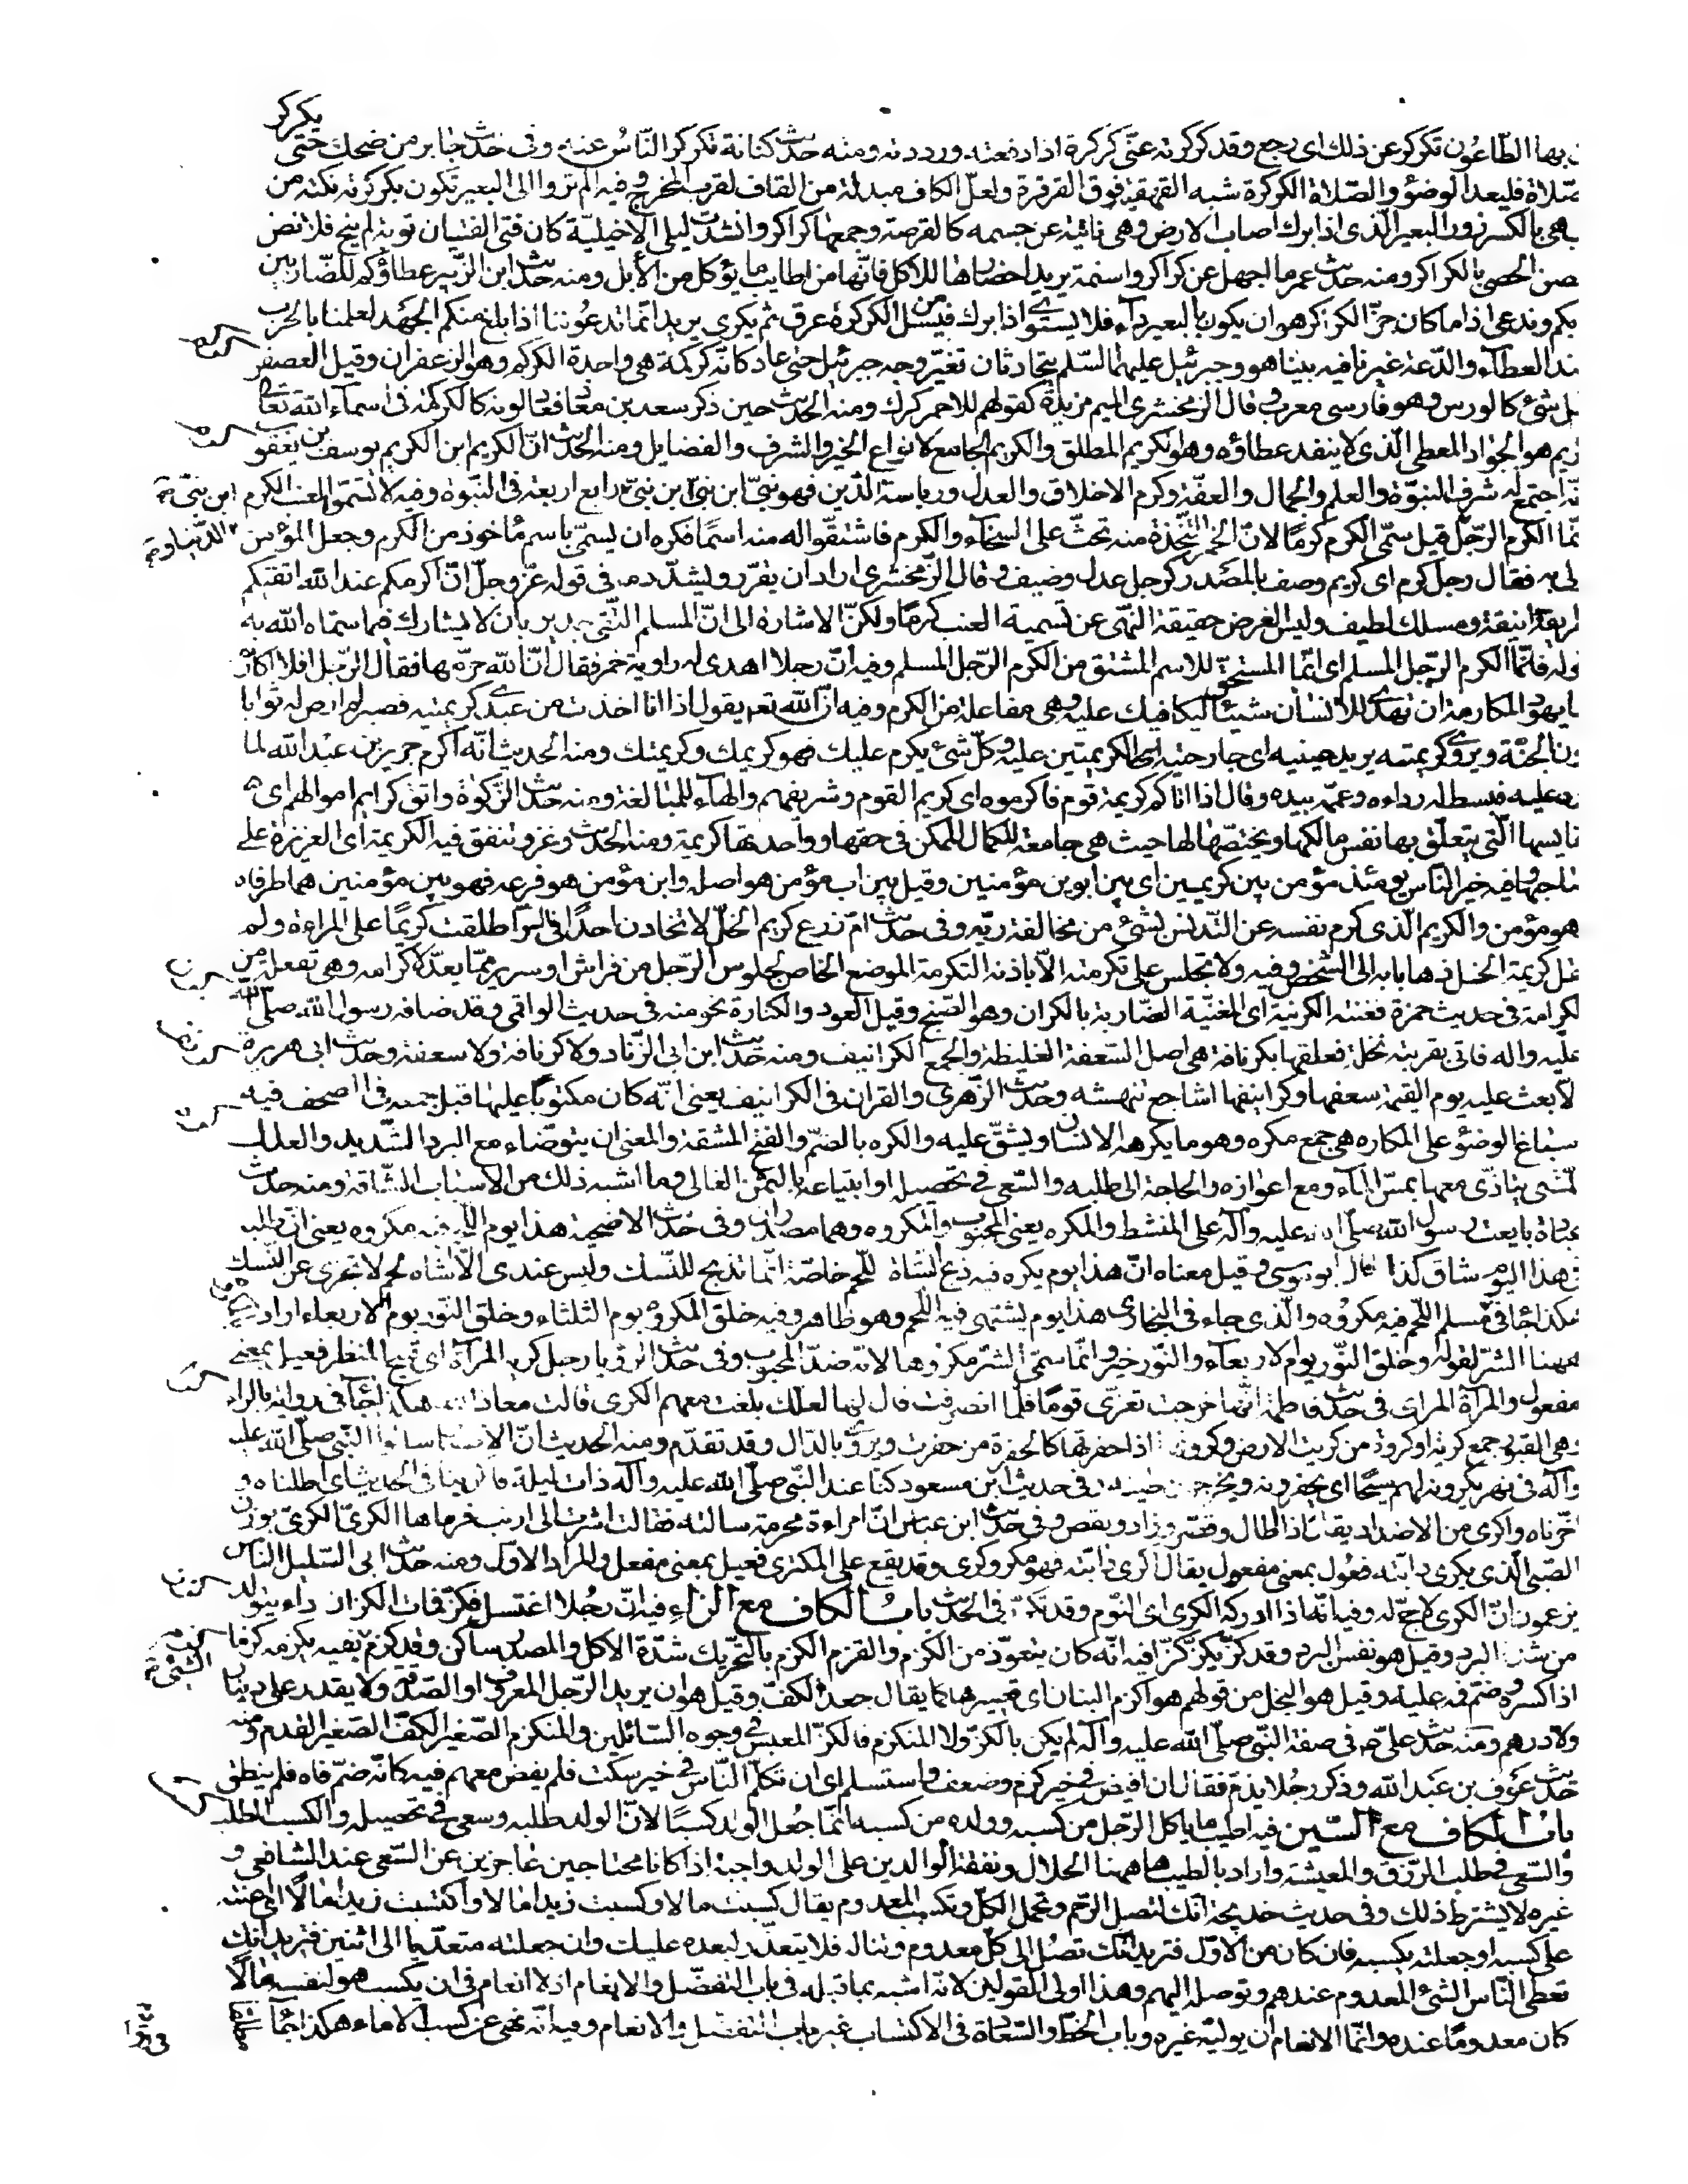 بها الطّاعون تكركر عن ذلك اى رجع وقد كركرته عنّى كركرة اذا دفعته ورددته ومنه حديث كنانة تكركر النّاس عنه وفى حديث جابر من ضحك حتى يكركر
الصّلاة فليعد الوضوٴ والصّلاة الكركرة شبه القهقهة فوق القرقرة ولعلّ الكاف مبدلة من القاف لقرب المخرج وفيه الم تروا الى البعير تكون بكركرته نكتة من
هى بالكسر زور البعير الّذى اذا برك اصاب الارض وهى ناتئة عن جسمه كالقرصة وجمعها كراكر وانشدت ليلى الاخيلية كان فتى الفتيان توبة لم ينخ قلائص
الحصى بالكراكر ومنه حديث عمر ما اجهل عن كراكر واسنمة يريد احضارها للاكل فانّها من اطايب ما يؤكل من الابل ومنه حديث ابن الزّبير عطاؤكم للضّاربين
بكم وندعى اذا ما كان حزّ الكراكر هو ان يكون بالبعير داء فلا يستوى اذا برك فيسل من الكركرة عرق ثم يكوى يريد انّما تدعوننا اذا بلغ منكم الجهد لعلمنا بالحرب
عند العطاء والدّعة غيرنا فيه بينا هو وجبرئيل عليهما السّلم يتحادثان تغيّر وجه جبرئيل حتى عاد كانّه كركمة هى واحدة الكركم وهو الزعفران وقيل العصفر
شئ كالورس وهو فارسى معرب وقال الزمخشرى الميم مزيدة كقولهم للاحمر كرك ومنه الحديث حين ذكر سعد بن معاذ فعاد لونه كالكركمة فى اسماء الله تعالى
الكريم هو الجواد المعطى الّذى لا ينفد عطاؤه وهو الكريم المطلق والكريم الجامع لانواع الخير والشرف والفضايل ومنه الحديث انّ الكريم ابن الكريم يوسف بن يعقوب
اجتمع له شرف النبوّة والعلم والجمال والعفّة وكرم الاخلاق والعدل ورياسة الدّين فهو نبىّ ابن نبىّ ابن نبىّ رابع اربعة فى النبوة وفيه لا تسمّوا العنب الكرم
ابن نبىّ
انّما الكرم الرّجل قيل سمّى الكرم كرمًا لانّ الخمر المتّخذة منه تحثّ على السخاء والكرم فاشتقّوا له منه اسمًا فكره ان يسمّى باسم ماخوذ من الكرم وجعل المؤمن
الدّنيا و
به فقال رجل كرم اى كريم وصف بالمصدر كرجل عدل وضيف وقال الزّمخشرى اراد ان يقرّر ويشدّد ما فى قوله عزّ وجلّ انّ اكرمكم عند الله اتقيكم
بطريقة انيقة ومسلك لطيف وليس الغرض حقيقة النّهى عن تسمية العنب كرمًا ولكنّ الاشارة الى انّ المسلم التّقى جدير بان لا يشارك فيما سمّاه الله به
قوله فانّما الكرم الرّجل المسلم اى انّما المستحق للاسم المشتق من الكرم الرّجل المسلم وفيه انّ رجلا اهدى له راوية خمر فقال انّ الله حرّمها فقال الرّجل افلا اكارم
بها يهود المكارمة ان تهدى للانسان شيئا ليكافيك عليه وهى مفاعلة من الكرم وفيه انّ الله تعم يقول اذا انا اخذت من عبدى كريمتيه فصبر لم ارض له ثوابا
دون الجنّة ويروى كريمته يريد عينيه اى جارحتيه الكريمتين عليه وكلّ شئ يكرم عليك فهو كريمك وكريمتك ومنه الحديث انّه اكرم جرير بن عبد الله لما
ورد عليه فبسط له رداءه وعمّمه بيده وقال اذا اتاكم كريمة قوم فاكرموه اى كريم القوم وشريفهم والهاء للمبالغة ومنه حديث الزّكوة واتق كرايم اموالهم اى
نفايسها الّتى يتعلّق بها نفس مالكها ويختصّها لها حيث هى جامعة للكمال الممكن فى حقها وواحدتها كريمة ومنه الحديث وغزو تنفق فيه الكريمة اى العزيزة على
صاحبها وفيه خير النّاس يومئذ مؤمن بين كريمين اى بين ابوين مؤمنين وقيل بين اب مؤمن هو اصله وابن مؤمن هو فرعه فهو بين مؤمنين هما طرفاه
هو مؤمن والكريم الّذى كرم نفسه عن التّدنّس بشئ من مخالفة ربّه وفى حديث امّ زرع كريم الخلّ لا تخادن احدًا فى السّرّ اطلقت كريمًا على المراءة ولم
تقل كريمة الخل ذهابا به الى الشخص وفيه ولا تجلس على تكرمته الّا باذنه التكرمة الموضع الخاص لجلوس الرّجل من فراش او سرير ممّا يعدّ لاكرامه وهى تفعلة من
الكرامة فى حديث حمزة فغنته الكرينة اى المغنّية الضّاربة بالكران وهو الصّنج وقيل العود والكنارة نحو منه فى حديث الواقمى وقد ضافه رسول الله صلّى الله
عليه واله فاتى بقربته نخلة فعلقها بكرنافة هى اصل السّعفة الغليظة والجمع الكرانيف ومنه حديث ابن ابى الزّناد ولا كرنافة ولا سعفة وحديث ابى هريرة
الا بعث عليه يوم القيمة سعفها وكرانيفها اشاجع تنهشه وحديث الزّهرى والقران فى الكرانيف يعنى انّه كان مكتوبًا عليها قبل جمعه فى الصحف فيه
اسباغ الوضوٴ على المكاره هى جمع مكره وهو ما يكرهه الانسان ويشقّ عليه والكره بالضّم والفتح المشقة والمعنى ان يتوضّاء مع البرد الشّديد والعلل
الّتى يتاذّى معها بمسّ الماء ومع اعوازه والحاجة الى طلبه والسّعى فى تحصيله او ابتياعه بالثمن الغالى وما اشبه ذلك من الاسباب الشّاقة ومنه حديث
عبادة بايعت رسول الله صلّى الله عليه وآله على المنشط والمكره يعنى المحبوب والمكروه وهما مصدران وفى حديث الاضحية هذا يوم اللّحم فيه مكروه يعنى انّ طلبه
فى هذا اليوم شاق كذا قال ابو موسى وقيل معناه انّ هذا يوم يكره فيه ذبح الشاة للّحم خاصّة انّما تذبح للنّسك وليس عندى الّا شاه لحم لا تجزى عن النّسك
هكذا جاء فى مسلم اللّحم فيه مكروه والّذى جاء فى البخارى هذا يوم يشتهى فيه اللّحم وهو ظاهر وفيه خلق المكروه يوم الثلثاء وخلق النّور يوم الاربعاء اراد
ههنا الشّرّ لقوله وخلق النّور يوم الاربعاء والنّور خير وانّما سمّى الشّرّ مكروها لانّه ضدّ المحبوب وفى حديث الرؤيا رجل كريه المرآة اى قبيح المنظر فعيل بمعنى
مفعول والمرآة المراى فى حديث فاطمة انّها خرجت تعزّى قومًا فلمّا انصرفت قال لها لعلّك بلغت معهم الكرى قالت معاذ الله هكذا جاء فى رواية بالراء
وهى القبور جمع كرية او كروة من كريت الارض وكروتها اذا حفرتها كالحفرة من حفرت ويروى بالدّال وقد تقدّم ومنه الحديث انّ الانصار سالوا النّبى صلّى الله عليه
وآله فى نهر يكرونه لهم سيحًا اى يحفرونه ويخرجون طينه وفى حديث ابن مسعود كنّا عند النّبى صلّى الله عليه وآله ذات ليلة فاكرينا فى الحديث اى اطلناه و
اخّرناه واكرى من الاضداد يقال اذا اطال وقصّر وزاد ونقص وفى حديث ابن عباس انّ امراءة محرمة سالته فقالت اشرت الى ارنب فرماها الكرىّ الكرىّ بوزن
الصّبى الّذى يكرى دابّته فعول بمعنى مفعول يقال اكرى دابّته فهو مكر وكرى وقد يقع على المكترى فعيل بمعنى مفعل والمراد الاوّل ومنه حديث ابى السّليل النّاس
يزعمون انّ الكرى لا حجّ له وفيه انّه اذا ادركه الكرى اى النّوم وقد تكرّر فى الحديث باب الكاف مع الزاء فيه انّ رجلا اغتسل فكزّ فمات الكزاز داء يتولّد
من شدّة البرد وقيل هو نفس البرد وقد كزّ يكزّ كزّا فيه انّه كان يتعوّذ من الكزم والقزم الكزم بالتّحريك شدّة الاكل والمصدر ساكن وقد كزم بفيه يكزمه كزما
الشّئ
اذا كسره وضمّ فمه عليه وقيل هو البخل من قولهم هو اكزم البنان اى قصيرها كما يقال جعد الكفّ وقيل هو ان يريد الرّجل المعروف او الصّدقة ولا يقدر على دينار
ولا درهم ومنه حديث علىّ ع فى صفة النّبى صلّى الله عليه وآله لم يكن بالكزّ ولا المنكزم فالكزّ المعبس فى وجوه السّائلين والمنكزم الصّغير الكفّ الصّغير القدم ومنه
حديث عون بن عبد الله وذكر رجلا يذمّ فقال ان افيض فى خير كزم وضعف واستسلم اى ان تكلّم النّاس فى خير سكت فلم يفض معهم فيه كانّه ضمّ فاه فلم ينطق
باب الكاف مع السّين فيه اطيب ما ياكل الرّجل من كسبه وولده من كسبه انّما جعل الولد كسبًا لانّ الوالد طلبه وسعى فى تحصيله والكسب الطلب
والسّعى فى طلب الرّزق والمعيشة واراد بالطيب هاهنا الحلال ونفقة الوالدين على الولد واجبة اذا كانا محتاجين عاجزين عن السّعى عند الشافعى و
غيره لا يشترط ذلك وفى حديث خديجة انّك لتصل الرّحم وتحمل الكلّ وتكسب المعدوم يقال كسبت مالا وكسبت زيدا مالا واكسبت زيدا مالًا اى اعنته
على كسبه او جعلته يكسبه فان كان من الاوّل فتريد انّك تصل الى كلّ معدوم وتناله فلا يتعذّر لبعده عليك وان جعلته متعدّيا الى اثنين فتريد انّك
تعطى النّاس الشّئ المعدوم عندهم وتوصله اليهم وهذا اولى القولين لانّه اشبه بما قبله فى باب التفضّل والانعام اذ لا انعام فى ان يكسب هو لنفسه مالًا
كان معدومًا عنده وانّما الانعام ان يوليه غيره وباب الحظّ والسّعادة فى الاكتساب غير باب التفضّل والانعام وفيه انّه نهى عن كسب الاماء هكذا جاء